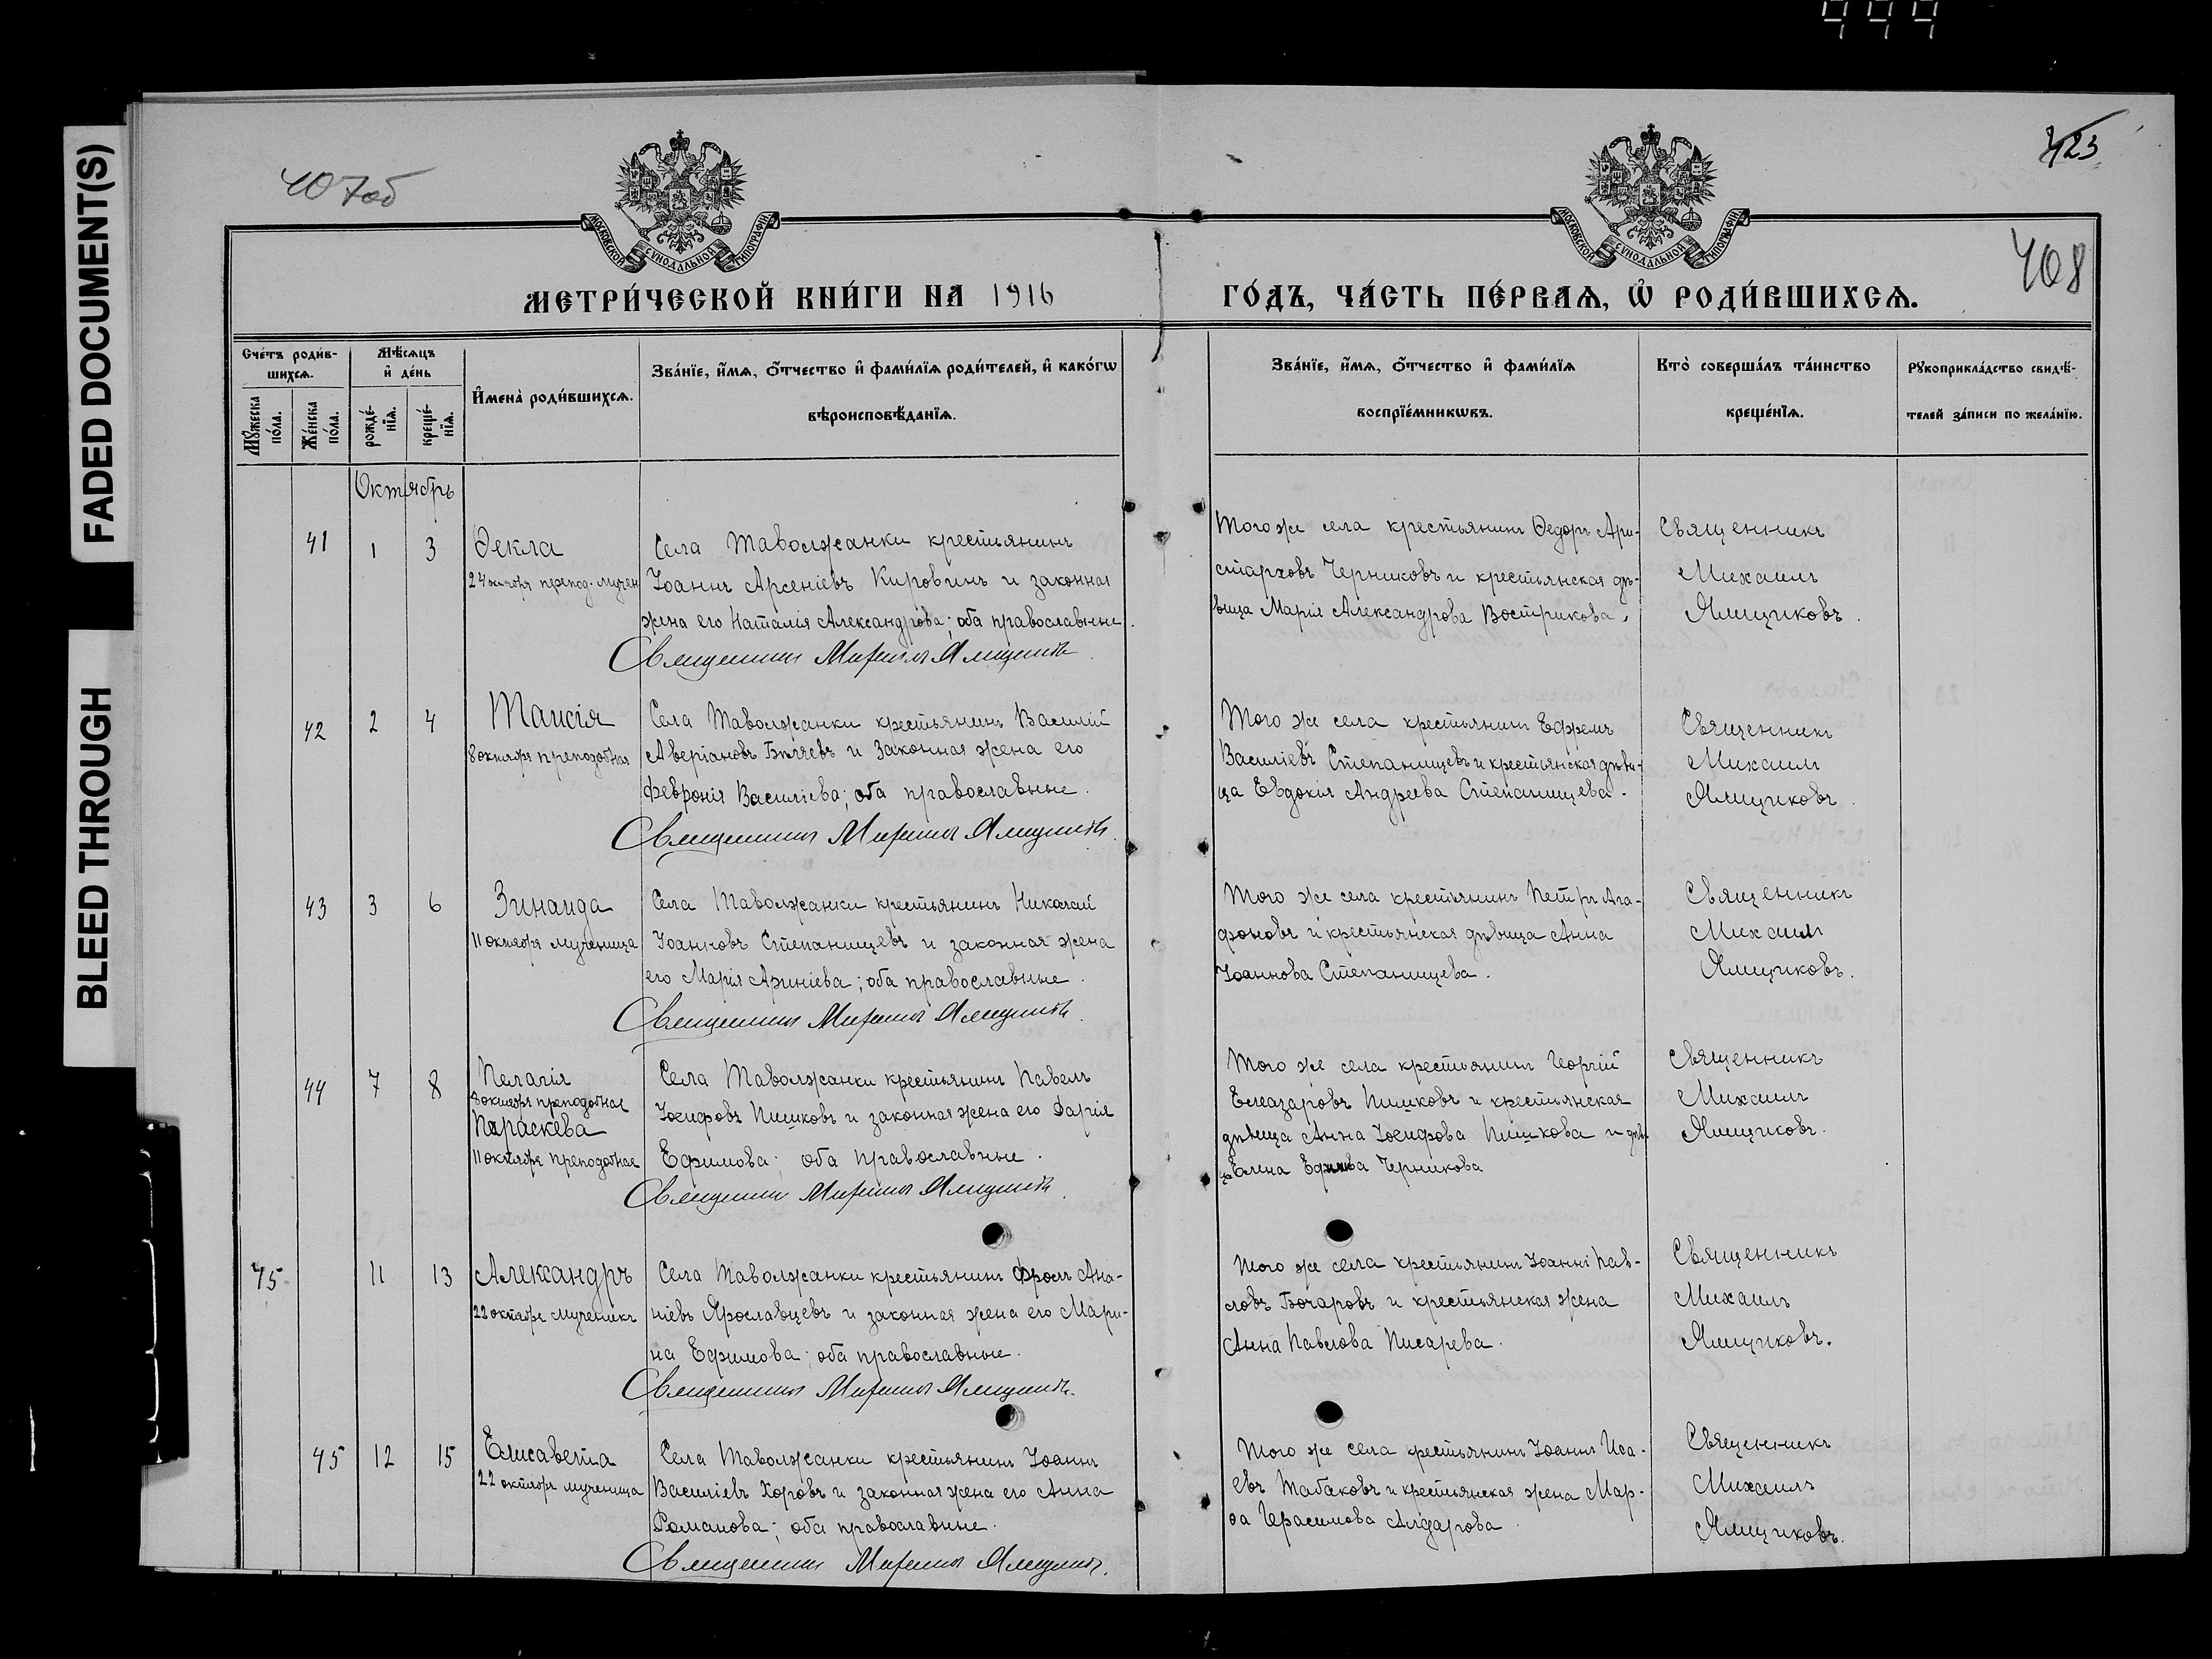 444
FADED DOCUMENT(S)
BLEED THROUGH
407об
423
408
МОСКОВСКОЙ СѴНОДАЛЬНОЙ ТИПОГРАФІИ
МОСКОВСКОЙ СѴНОДАЛЬНОЙ ТИПОГРАФІИ
МЕТРИ́ЧЕСКОЙ КНИ́ГИ НА 1916 ГО́ДЪ, ЧА́СТЬ ПЕ́РВАѦ, Ѽ РОДИ́ВШИХСѦ.
Сче́тъ роди́в-
шихсѧ.
Мꙋ́жеска по́ла.
Же́нска по́ла.
Мѣ́сѧцъ
и҆ де́нь
рожде́-
нїѧ.
креще́-
нїѧ.
И҆мена̀ роди́вшихсѧ.
Зва́нїе, и҆́мѧ, ѻ҆́тчество и҆ фами́лїѧ роди́телей, и҆ како́гѡ
вѣроисповѣ́данїѧ.
Зва́нїе, и҆́мѧ, ѻ҆́тчество и҆ фами́лїѧ
воспрїе́мникѡвъ.
Кто̀ соверша́лъ та́инство
креще́нїѧ.
Рꙋкоприкла́дство свидѣ́-
телей за́писи по жела́нїю.
Октябрь
41 1 3
Ѳекла
24 октября препод. мучен
Села Таволжанки крестьянинъ
Іоаннъ Арсеніевъ Кировинъ и законная
жена его Наталія Александрова; оба православные.
Священникъ Михаилъ Ямщиковъ
Того же села крестьянинъ Ѳедоръ Ари-
старховъ Черниковъ и крестьянская дѣ-
вица Марія Александрова Вострикова.
Священникъ
Михаилъ
Ямщиковъ.
42 2 4
Таисія
8 октября преподобная
Села Таволжанки крестьянинъ Василій
Аверіановъ Бѣляевъ и законная жена его
Февронія Василіева; оба православные.
Священникъ Михаилъ Ямщиковъ.
Того же села крестьянинъ Ефремъ
Василіевъ Степанищевъ и крестьянская дѣви-
ца Евдокія Андреева Степанищева.
Священникъ
Михаилъ
Ямщиковъ.
43 3 6
Зинаида
11 октября мученица
Села Таволжанки крестьянинъ Николай
Іоанновъ Степанищевъ и законная жена
его Марія Ариніева; оба православные.
Священникъ Михаилъ Ямщиковъ.
Того же села крестьянинъ Петръ Ага-
фоновъ и крестьянская дѣвица Анна
Іоаннова Степанищева.
Священникъ
Михаилъ
Ямщиковъ.
44 7 8
Пелагія
8 октября преподобная
Параскева
11 октября преподобная
Села Таволжанки крестьянинъ Павелъ
Іосифовъ Пишковъ и законная жена его Дарія
Ефимова; оба православные.
Священникъ Михаилъ Ямщиковъ.
Того же села крестьянинъ Георгій
Елеазаровъ Пишковъ и крестьянская
дѣвица Анна Іосифова Пишкова и дѣви-
ца Елена Черникова
Священникъ
Михаилъ
Ямщиковъ.
75 11 13
Александръ
22 октября мученикъ
Села Таволжанки крестьянинъ Фролъ Ана-
ніевъ Ярославцевъ и законная жена его Мари-
на Ефимова; оба православные.
Священникъ Михаилъ Ямщиковъ.
Того же села крестьянинъ Іоаннъ Пав-
ловъ Бочаровъ и крестьянская жена
Анна Павлова Писарева.
Священникъ
Михаилъ
Ямщиковъ.
45 12 15
Елисавета
22 октября мученица
Села Таволжанки крестьянинъ Іоаннъ
Василіевъ Хоровъ и законная жена его Анна
Романова; оба православные.
Священникъ Михаилъ Ямщиковъ.
Того же села крестьянинъ Іоаннъ Иса-
евъ Табаковъ и крестьянская жена Мар-
ѳа Герасимова Алдарова.
Священникъ
Михаилъ
Ямщиковъ.